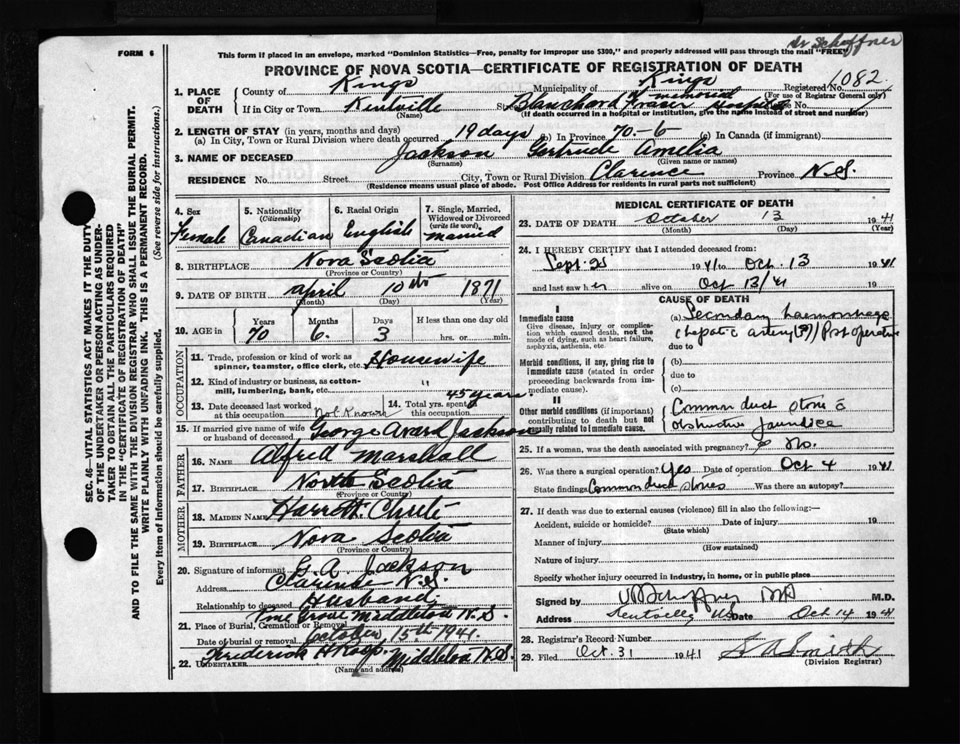 Dr Schaffner
FORM 6
This form if placed in an envelope, marked "Dominion Statistics—Free, penalty for improper use $300," and properly addressed will pass through the mail "FREE"
PROVINCE OF NOVA SCOTIA—CERTIFICATE OF REGISTRATION OF DEATH
1. PLACE OF DEATH
County of Kings Municipality of Kings Registered No. 1082
(For use of Registrar General only)
If in City or Town Kentville Blanchard Fraser memorial Hospital No.
(Name) (If death occurred in a hospital or institution, give the name instead of street and number)
2. LENGTH OF STAY (in years, months and days)
(a) In City, Town or Rural Division where death occurred 19 days (b) In Province 70-6 (c) In Canada (if immigrant)
3. NAME OF DECEASED Jackson Gertrude Amelia
(Surname) (Given name or names)
RESIDENCE No. Street City, Town or Rural Division Clarence Province N.S.
(Residence means usual place of abode. Post Office Address for residents in rural parts not sufficient)
4. Sex Female
5. Nationality (Citizenship) Canadian
6. Racial Origin English
7. Single, Married, Widowed or Divorced (write the word) married
8. BIRTHPLACE Nova Scotia
(Province or Country)
9. DATE OF BIRTH april 10th 1871
(Month) (Day) (Year)
10. AGE in Years Months Days If less than one day old
70 6. 3 hrs. or min.
OCCUPATION
11. Trade, profession or kind of work as spinner, teamster, office clerk, etc. Housewife
12. Kind of industry or business, as cotton-mill, lumbering, bank, etc. "
13. Date deceased last worked at this occupation Not Known
14. Total yrs. spent in this occupation 45 years.
15. If married give name of wife or husband of deceased George Avard Jackson
FATHER
16. NAME Alfred Marshall
17. BIRTHPLACE Scotia
(Province or Country)
MOTHER
18. MAIDEN NAME
19. BIRTHPLACE Nova Scotia
(Province or Country)
20. Signature of informant G. A. Jackson
Address N.S.
Relationship to deceased Husband
21. Place of Burial, Cremation or Removal Pine Grove Middleton N.S.
Date of burial or removal October, 15th 1941.
22. UNDERTAKER Frederick H Roop Middleton N.S.
(Name and address)
MEDICAL CERTIFICATE OF DEATH
23. DATE OF DEATH October 13 1941
(Month) (Day) (Year)
24. I HEREBY CERTIFY that I attended deceased from:
Sept. 25 1941 to Oct. 13 1941
and last saw her alive on Oct 13/41 19
CAUSE OF DEATH
I
Immediate cause
Give disease, injury or complication which caused death, not the mode of dying, such as heart failure, asphyxia, asthenia, etc.
(a) Secondary haemorrhage
(hepatic artery(?)) Post operative
due to
Morbid conditions, if any, giving rise to immediate cause (stated in order proceeding backwards from immediate cause).
(b)
due to
(c)
II
Other morbid conditions (if important) contributing to death but not causally related to immediate cause.
Common duct stone c̄
obstructive jaundice
25. If a woman, was the death associated with pregnancy? No.
26. Was there a surgical operation? Yes Date of operation Oct 4 1941
State findings Common duct stones Was there an autopsy?
27. If death was due to external causes (violence) fill in also the following:—
Accident, suicide or homicide? Date of injury 19
(State which)
Manner of injury
(How sustained)
Nature of injury
Specify whether injury occurred in industry, in home, or in public place
Signed by Schaffner MD M.D.
Address Kentville, NS Date Oct 14 1941
28. Registrar's Record Number
29. Filed Oct. 31 1941 Smith
(Division Registrar)
SEC. 46—VITAL STATISTICS ACT MAKES IT THE DUTY
OF THE UNDERTAKER OR PERSON ACTING AS UNDER-
TAKER TO OBTAIN ALL THE PARTICULARS REQUIRED
IN THE "CERTIFICATE OF REGISTRATION OF DEATH"
AND TO FILE THE SAME WITH THE DIVISION REGISTRAR WHO SHALL ISSUE THE BURIAL PERMIT.
WRITE PLAINLY WITH UNFADING INK. THIS IS A PERMANENT RECORD.
Every item of information should be carefully supplied. (See reverse side for instructions.)